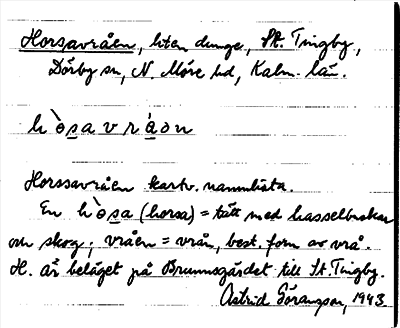 Horsavråen, liten dunge, St. Tingby,
Dörby sn, N. Möre hd, Kalm. län.
hòsavráən
Horssavråen kartv. namnlista.
En hòsa (horsa) = tätt med hasselbuskar
och skog; vråen = vrån, best. form av vrå.
H. är beläget på Brunnsgärdet till St. Tingby.
Astrid Göransson, 1943